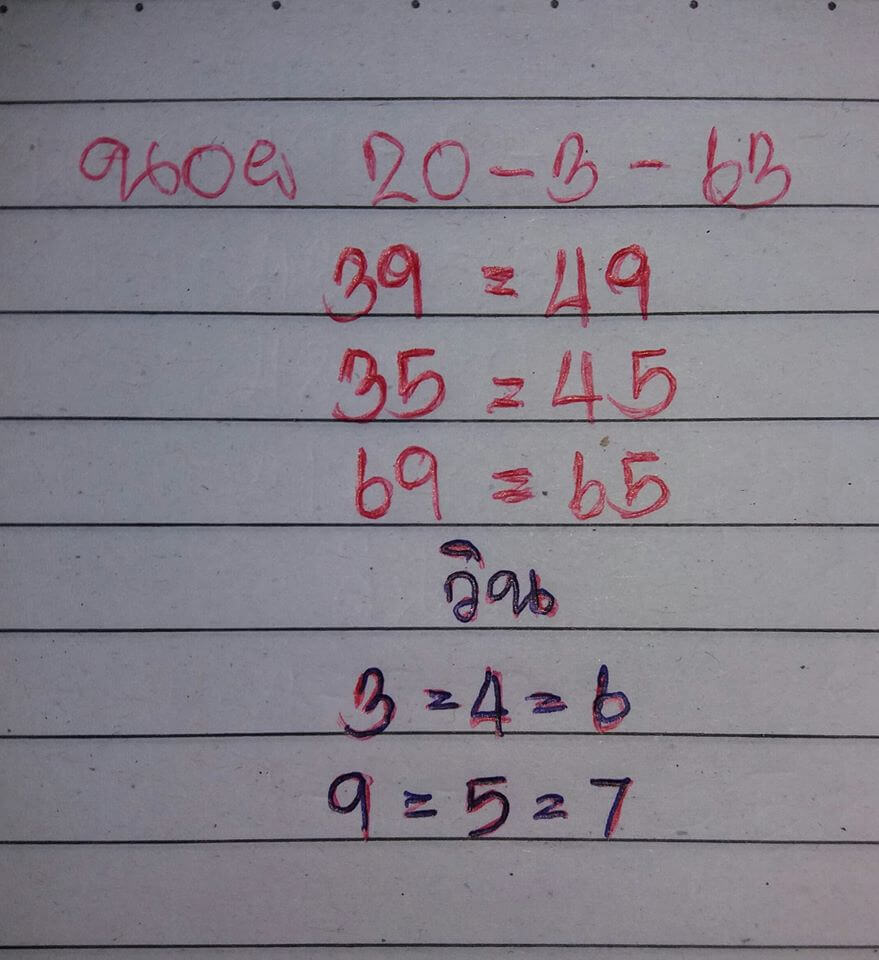 ฯนอย 20-3-63
39 = 49
35 = 45
69 = 65
วิน
3 = 4 = 6
9 = 5 = 7